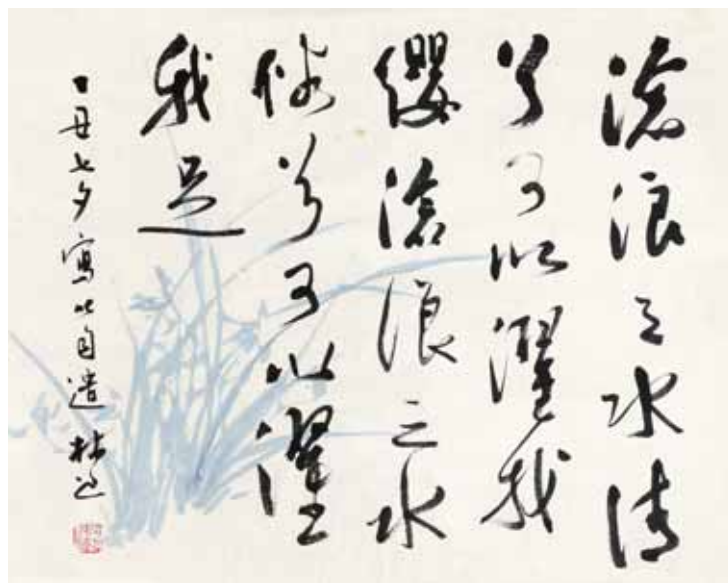 滄浪之水清
兮可以濯我
纓滄浪之水
濁兮可以濯
我足
丁丑七夕寫以自遣